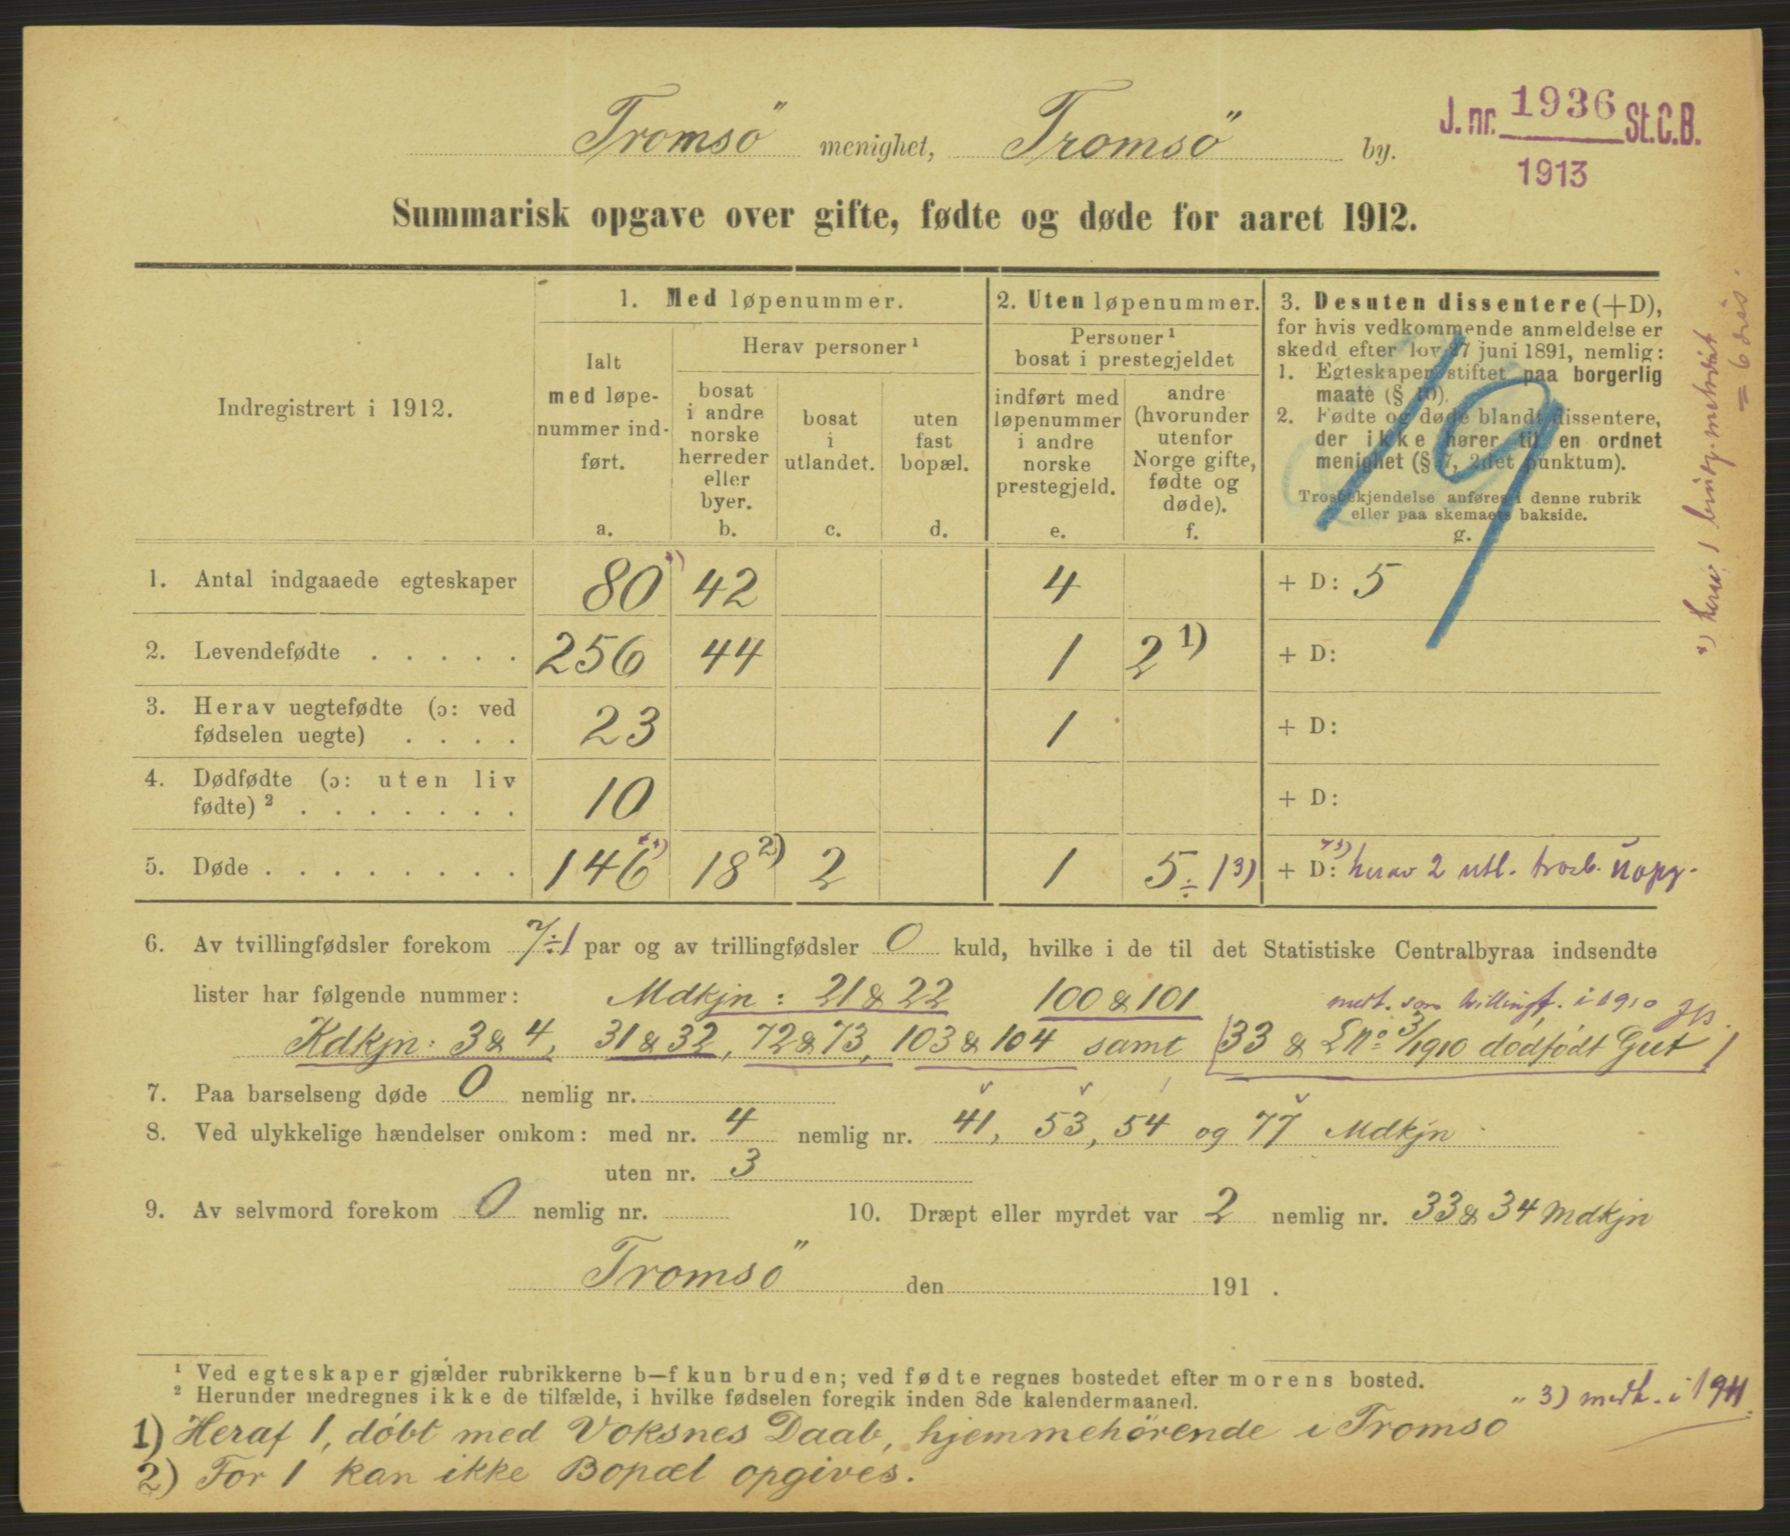 Tromsö menighet, Tromsö by.
J. nr. 1936 St. C. B.
1913
Summarisk opgave over gifte, fødte og døde for aaret 1912.
Indregistrert i 1912.
1. Med løpenummer.
Ialt
med løpe-
nummer ind-
ført.
a.
Herav personer ¹
bosat
i andre
norske
herreder
eller
byer.
b.
bosat
i
utlandet.
c.
uten
fast
bopæl.
d.
2. Uten løpenummer.
Personer ¹
bosat i prestegjeldet
indført med
løpenummer
i andre
norske
prestegjeld.
e.
andre
(hvorunder
utenfor
Norge gifte,
fødte og
døde).
f.
3. Desuten dissentere (+D),
for hvis vedkommende anmeldelse er
skedd efter lov 27 juni 1891, nemlig:
1. Egteskaper stiftet paa borgerlig
maate (§ 10).
2. Fødte og døde blandt dissentere,
der ikke hører til en ordnet
menighet (§ 7, 2det punktum).
Trosbekjendelse anføres i denne rubrik
eller paa skemaets bakside.
g.
19
1. Antal indgaaede egteskaper 80 *) 42 4 + D: 5
2. Levendefødte . . . . . 256 44 1 2 1) + D:
3. Herav uegtefødte (ɔ: ved
fødselen uegte) . . . . 23 1 + D:
4. Dødfødte (ɔ: uten liv
fødte) ² . . . . . . . 10 + D:
5. Døde . . . . . . . . 146 18 2) 2 1 5 ÷ 1 3) + D: herav 2 utl. trosb. uopg.
6. Av tvillingfødsler forekom 7 ÷ 1 par og av trillingfødsler 0 kuld, hvilke i de til det Statistiske Centralbyraa indsendte
lister har følgende nummer: Mdkjn: 21 & 22 100 & 101 medt. som tvillingf. i 1910
Kdkjn: 3 & 4, 31 & 32, 72 & 73, 103 & 104 samt 33 & LNo 3/1910 dödfödt Gut
7. Paa barselseng døde 0 nemlig nr.
8. Ved ulykkelige hændelser omkom: med nr. 4 nemlig nr. 41, 53, 54 og 77 Mdkjn
uten nr. 3
9. Av selvmord forekom 0 nemlig nr.
10. Dræpt eller myrdet var 2 nemlig nr. 33 & 34 Mdkjn
Tromsö den 191 .
¹ Ved egteskaper gjælder rubrikkerne b—f kun bruden; ved fødte regnes bostedet efter morens bosted.
² Herunder medregnes ikke de tilfælde, i hvilke fødselen foregik inden 8de kalendermaaned.
3) medt. i 1911.
1) Heraf 1, döbt med Voksnes Daab, hjemmehörende i Tromsö
2) For 1 kan ikke Bopæl opgives.
*) herav 1
= 6